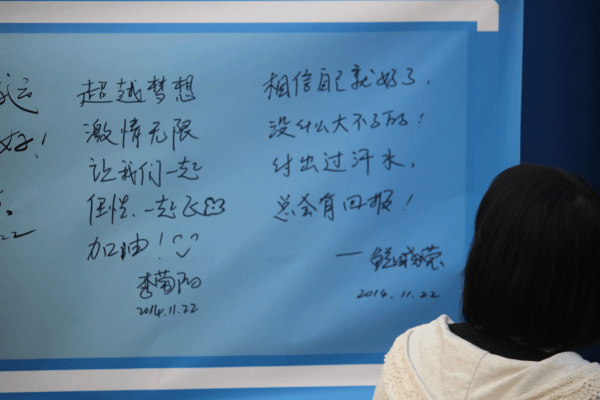 运
好！
22
超越梦想
激情无限
让我们一起
任性、一起飞
加油！
李菊阳
2014.11.22
相信自己就好了，
没什么大不了的！
付出过汗水，
总会有回报！
2014.11.22